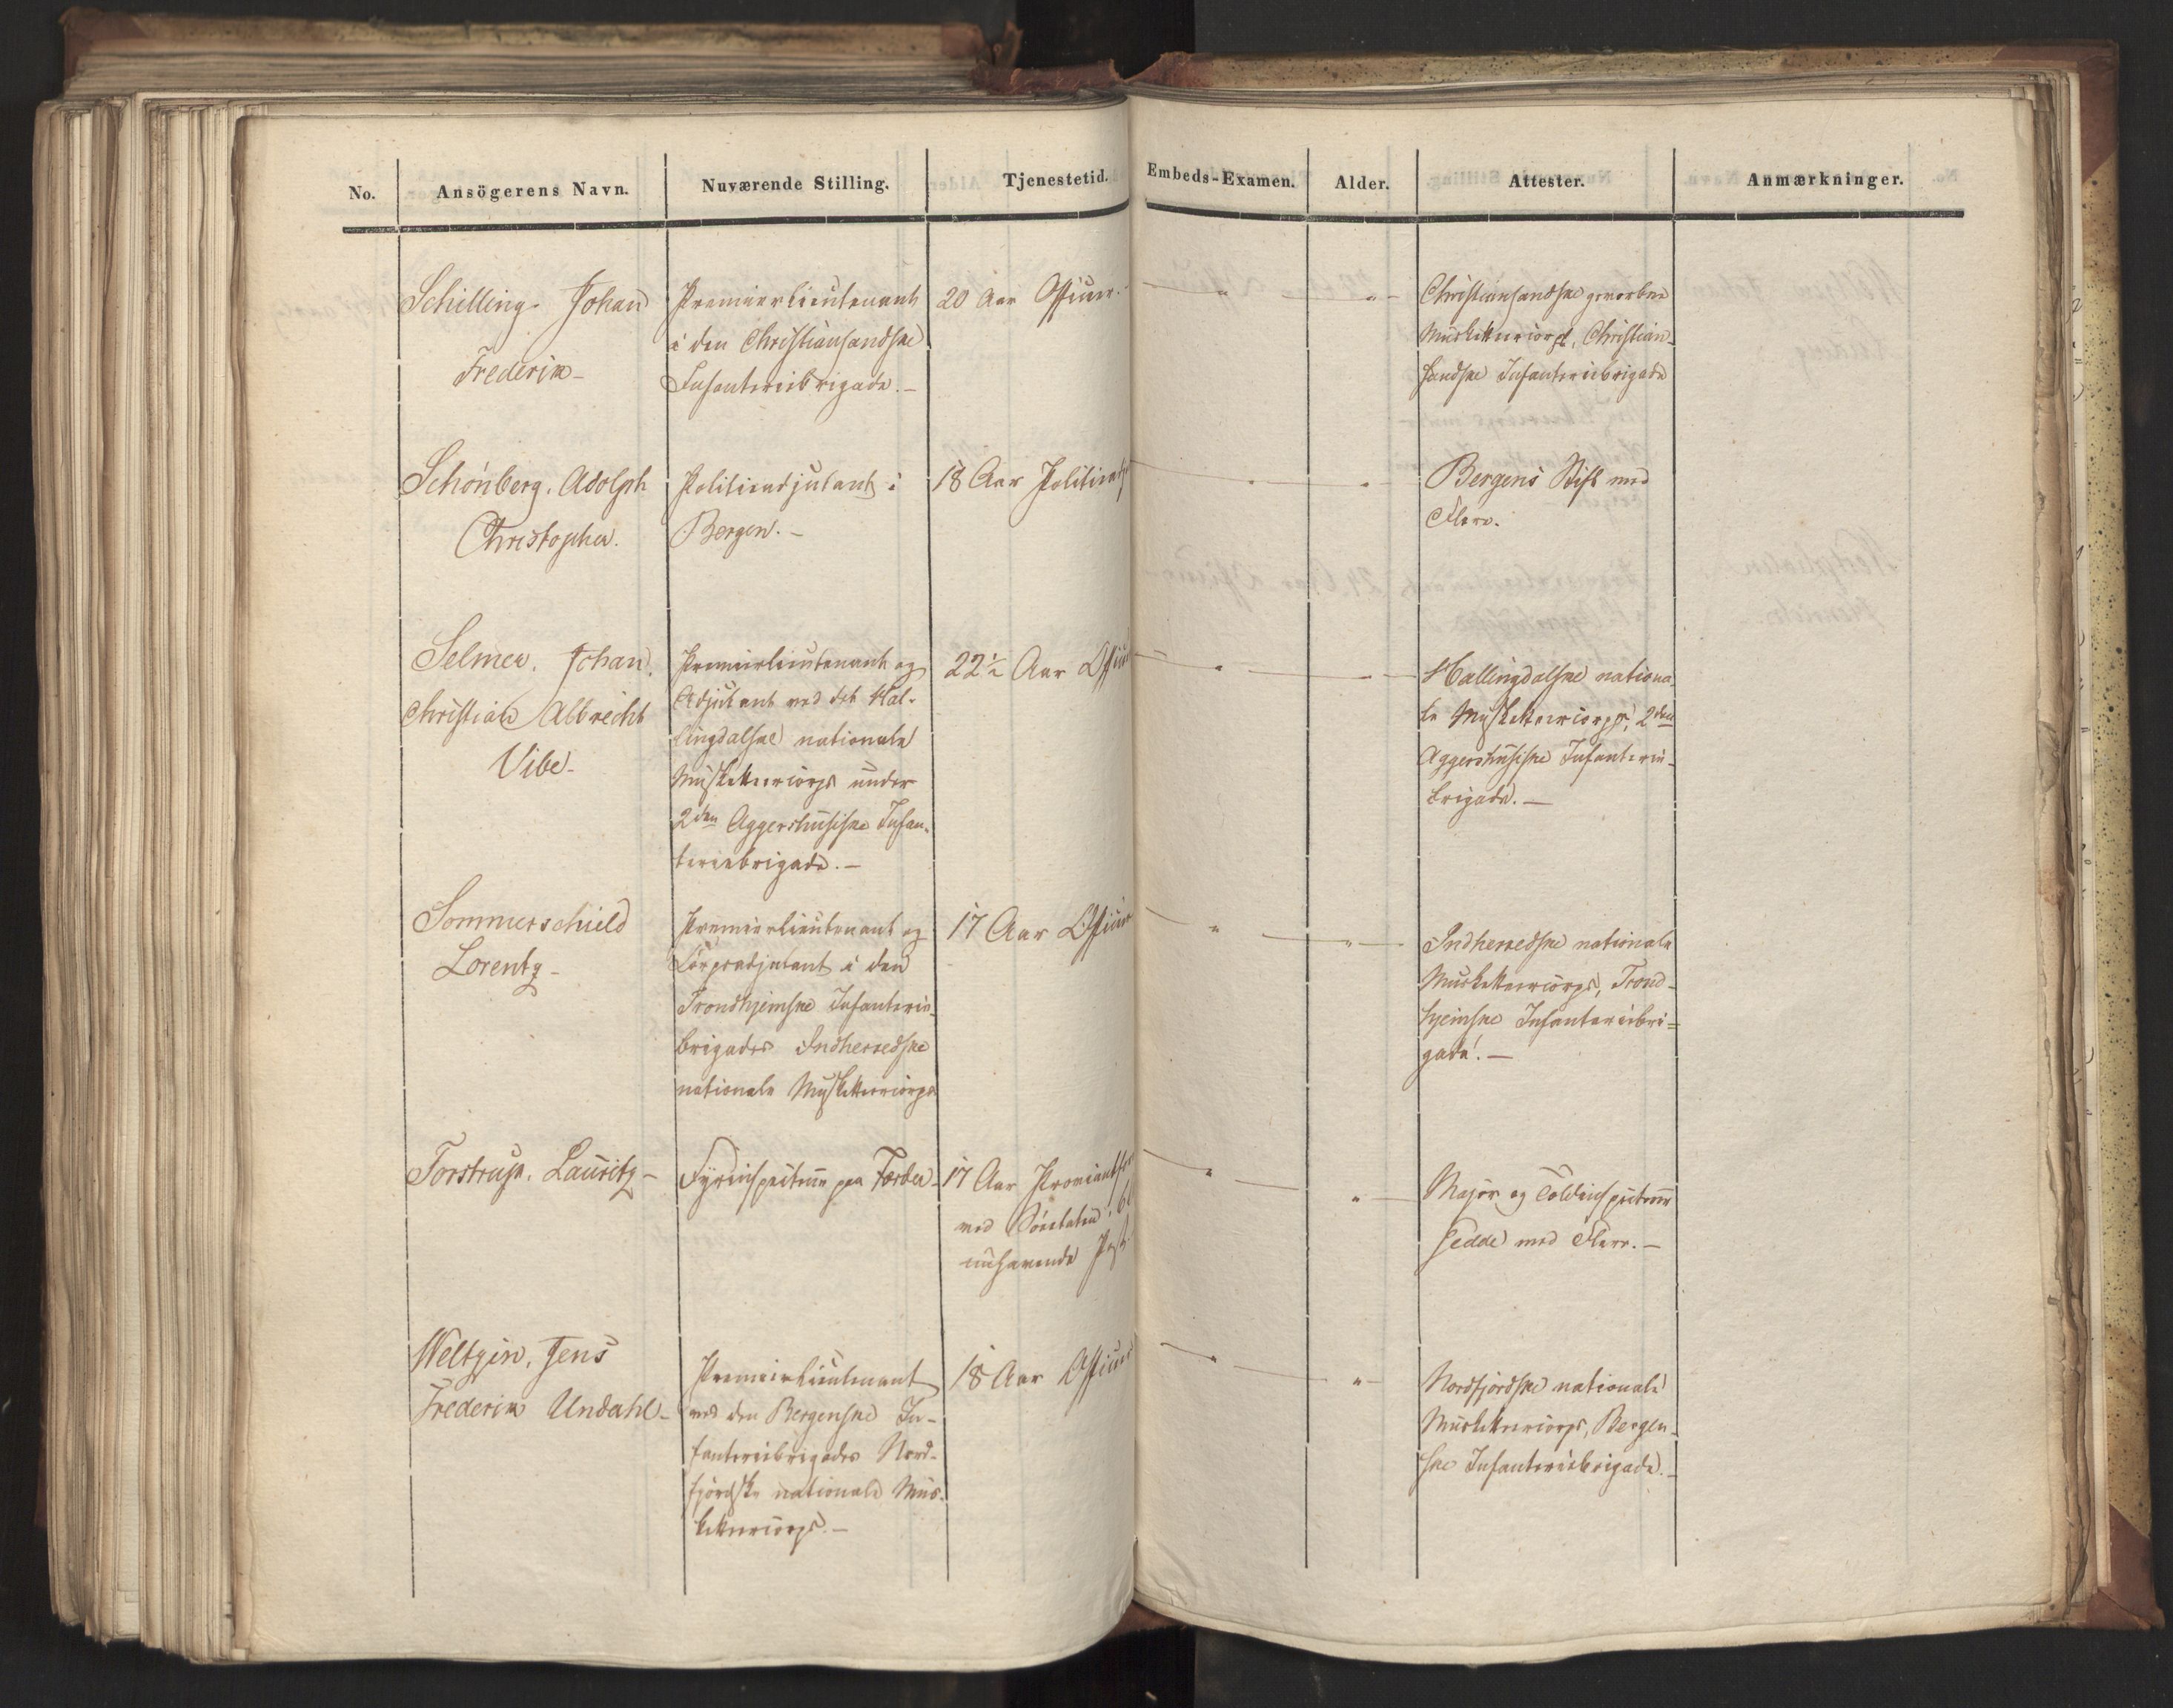 No. Ansögerens Navn. Nuværende Stilling. Tjenestetid. Embeds-Examen. Alder. Attester. Anmærkninger.
Schilling. Johan
Frederik –
Premierlieutenant
i den Christiansandske
Infanteriebrigade. –
20 Aar Officeer. –
" "
Christiansandske gevorbne
Musketteercorps, Christian-
sandske Infanteriebrigade
Schönberg, Adolph
Christopher.
Politieadjutant i
Bergen. –
18 Aar
" "
Bergens Stift med
Flere.
Selmer, Johan
Christian Albrecht
Vibe –
Premierlieutenant og
Adjutant ved det Hal-
lingdalske nationale
Musketteercorps under
2den Aggershusiske Infan-
teriebrigade. –
22½ Aar Officeer
" "
Hallingdalske nationa-
le Musketteercorps, 2den
Aggershusiske Infanterie-
brigade. –
Sommerschield
Lorentz –
Premierlieutenant og
Corpsadjutant i den
Trondhjemske Infanterie-
brigades Indherredske
nationale Musketteercorps
17 Aar Officeer
" "
Indherredske nationale
Musketteercorps, Trond-
hjemske Infanteriebri=
gade. –
Torstrup. Lauritz –
Fyrinspecteur paa Færder –
17 Aar
ved
nuhavende Post.
" "
Major og Toldinspecteur
Gedde med Flere. –
Weltzin, Jens
Frederik Undahl –
Premierlieutenant
ved den Bergenske In-
fanteriebrigades Nord-
fjordske nationale Mus-
ketteercorps. –
18 Aar Officeer
" "
Nordfjordske nationale
Musketteercorps, Bergen-
ske Infanteriebrigade. –